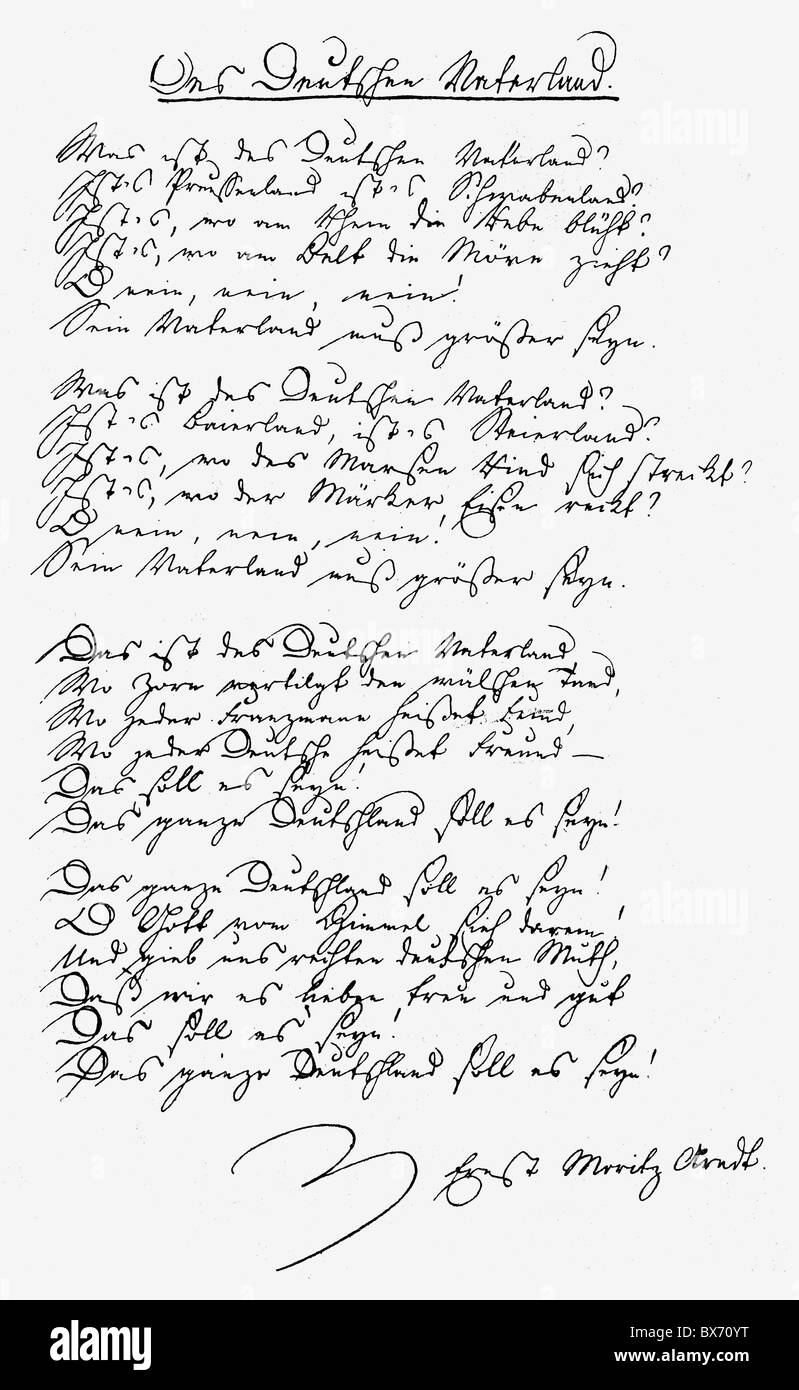 Des Deutschen Vaterland.
Was ist des Deutschen Vaterland?
Ist's Preussenland ist's Schwabenland?
Ist's, wo am Rhein die Rebe blüht?
Ist's, wo am Belt die Möve zieht?
O nein, nein, nein!
Sein Vaterland muß größer seyn.
Was ist des Deutschen Vaterland?
Ist's Baierland, ist's Steierland?
Ist's, wo des Marsen Rind sich streckt?
Ist's, wo der Märker Eisen reckt?
O nein, nein, nein!
Sein Vaterland muß größer seyn.
Das ist des Deutschen Vaterland
Wo Zorn vertilgt den wälschen Tand,
Wo jeder Franzmann heißet Feind,
Wo jeder Deutsche heißet Freund —
Das soll es seyn!
Das ganze Deutschland soll es seyn!
Das ganze Deutschland soll es seyn!
O Gott vom Himmel sieh darein!
Und gieb uns rechten deutschen Muth,
Daß wir es lieben treu und gut
Das soll es seyn!
Das ganze Deutschland soll es seyn!
Ernst Moritz Arndt.
alamy
Image ID: BX70YT
www.alamy.com